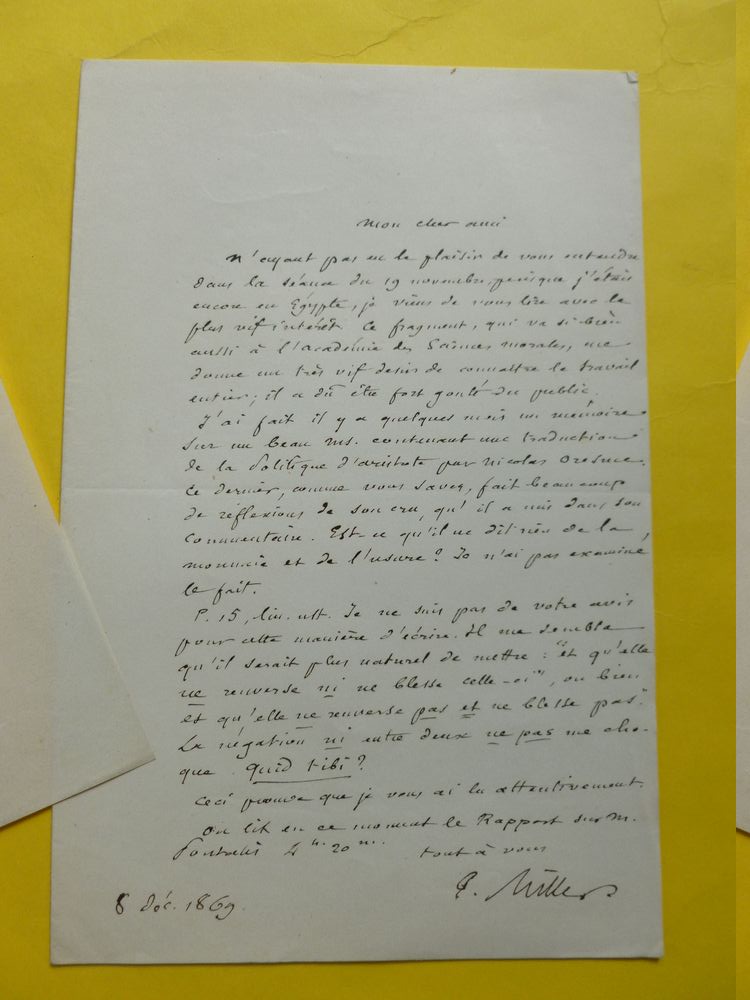 Mon cher ami
N'ayant pas eu le plaisir de vous entendre
dans la séance du 19 novembre, puisque j'étais
encore en Égypte, je viens de vous lire avec le
plus vif intérêt. Ce fragment, qui va si bien
aussi à l'académie des Sciences morales, me
donne un très vif desir de connaître le travail
entier; il a dû être fort goûté du public.
J'ai fait il y a quelques mois un mémoire
sur un beau ms. contenant une traduction
de la Politique d'aristote par Nicolas Oresme.
Ce dernier, comme vous savez, fait beaucoup
de réflexions de son cru, qu'il a mis dans son
commentaire. Est-ce qu'il ne dit rien de la
monnaie et de l'usure? Je n'ai pas examiné
le fait.
P. 15, lin. ult. Je ne suis pas de votre avis
pour cette manière d'écrire. Il me semble
qu'il serait plus naturel de mettre: "et qu'elle
ne renverse ni ne blesse celle-ci", ou bien
et qu'elle ne renverse pas et ne blesse pas."
La négation ni entre deux ne pas me cho-
que. Quid tibi?
Ceci prouve que je vous ai lu attentivement.
On lit en ce moment le Rapport sur M.
Portalis 4 h. 20 m. tout à vous
E. Miller
8 déc. 1869.